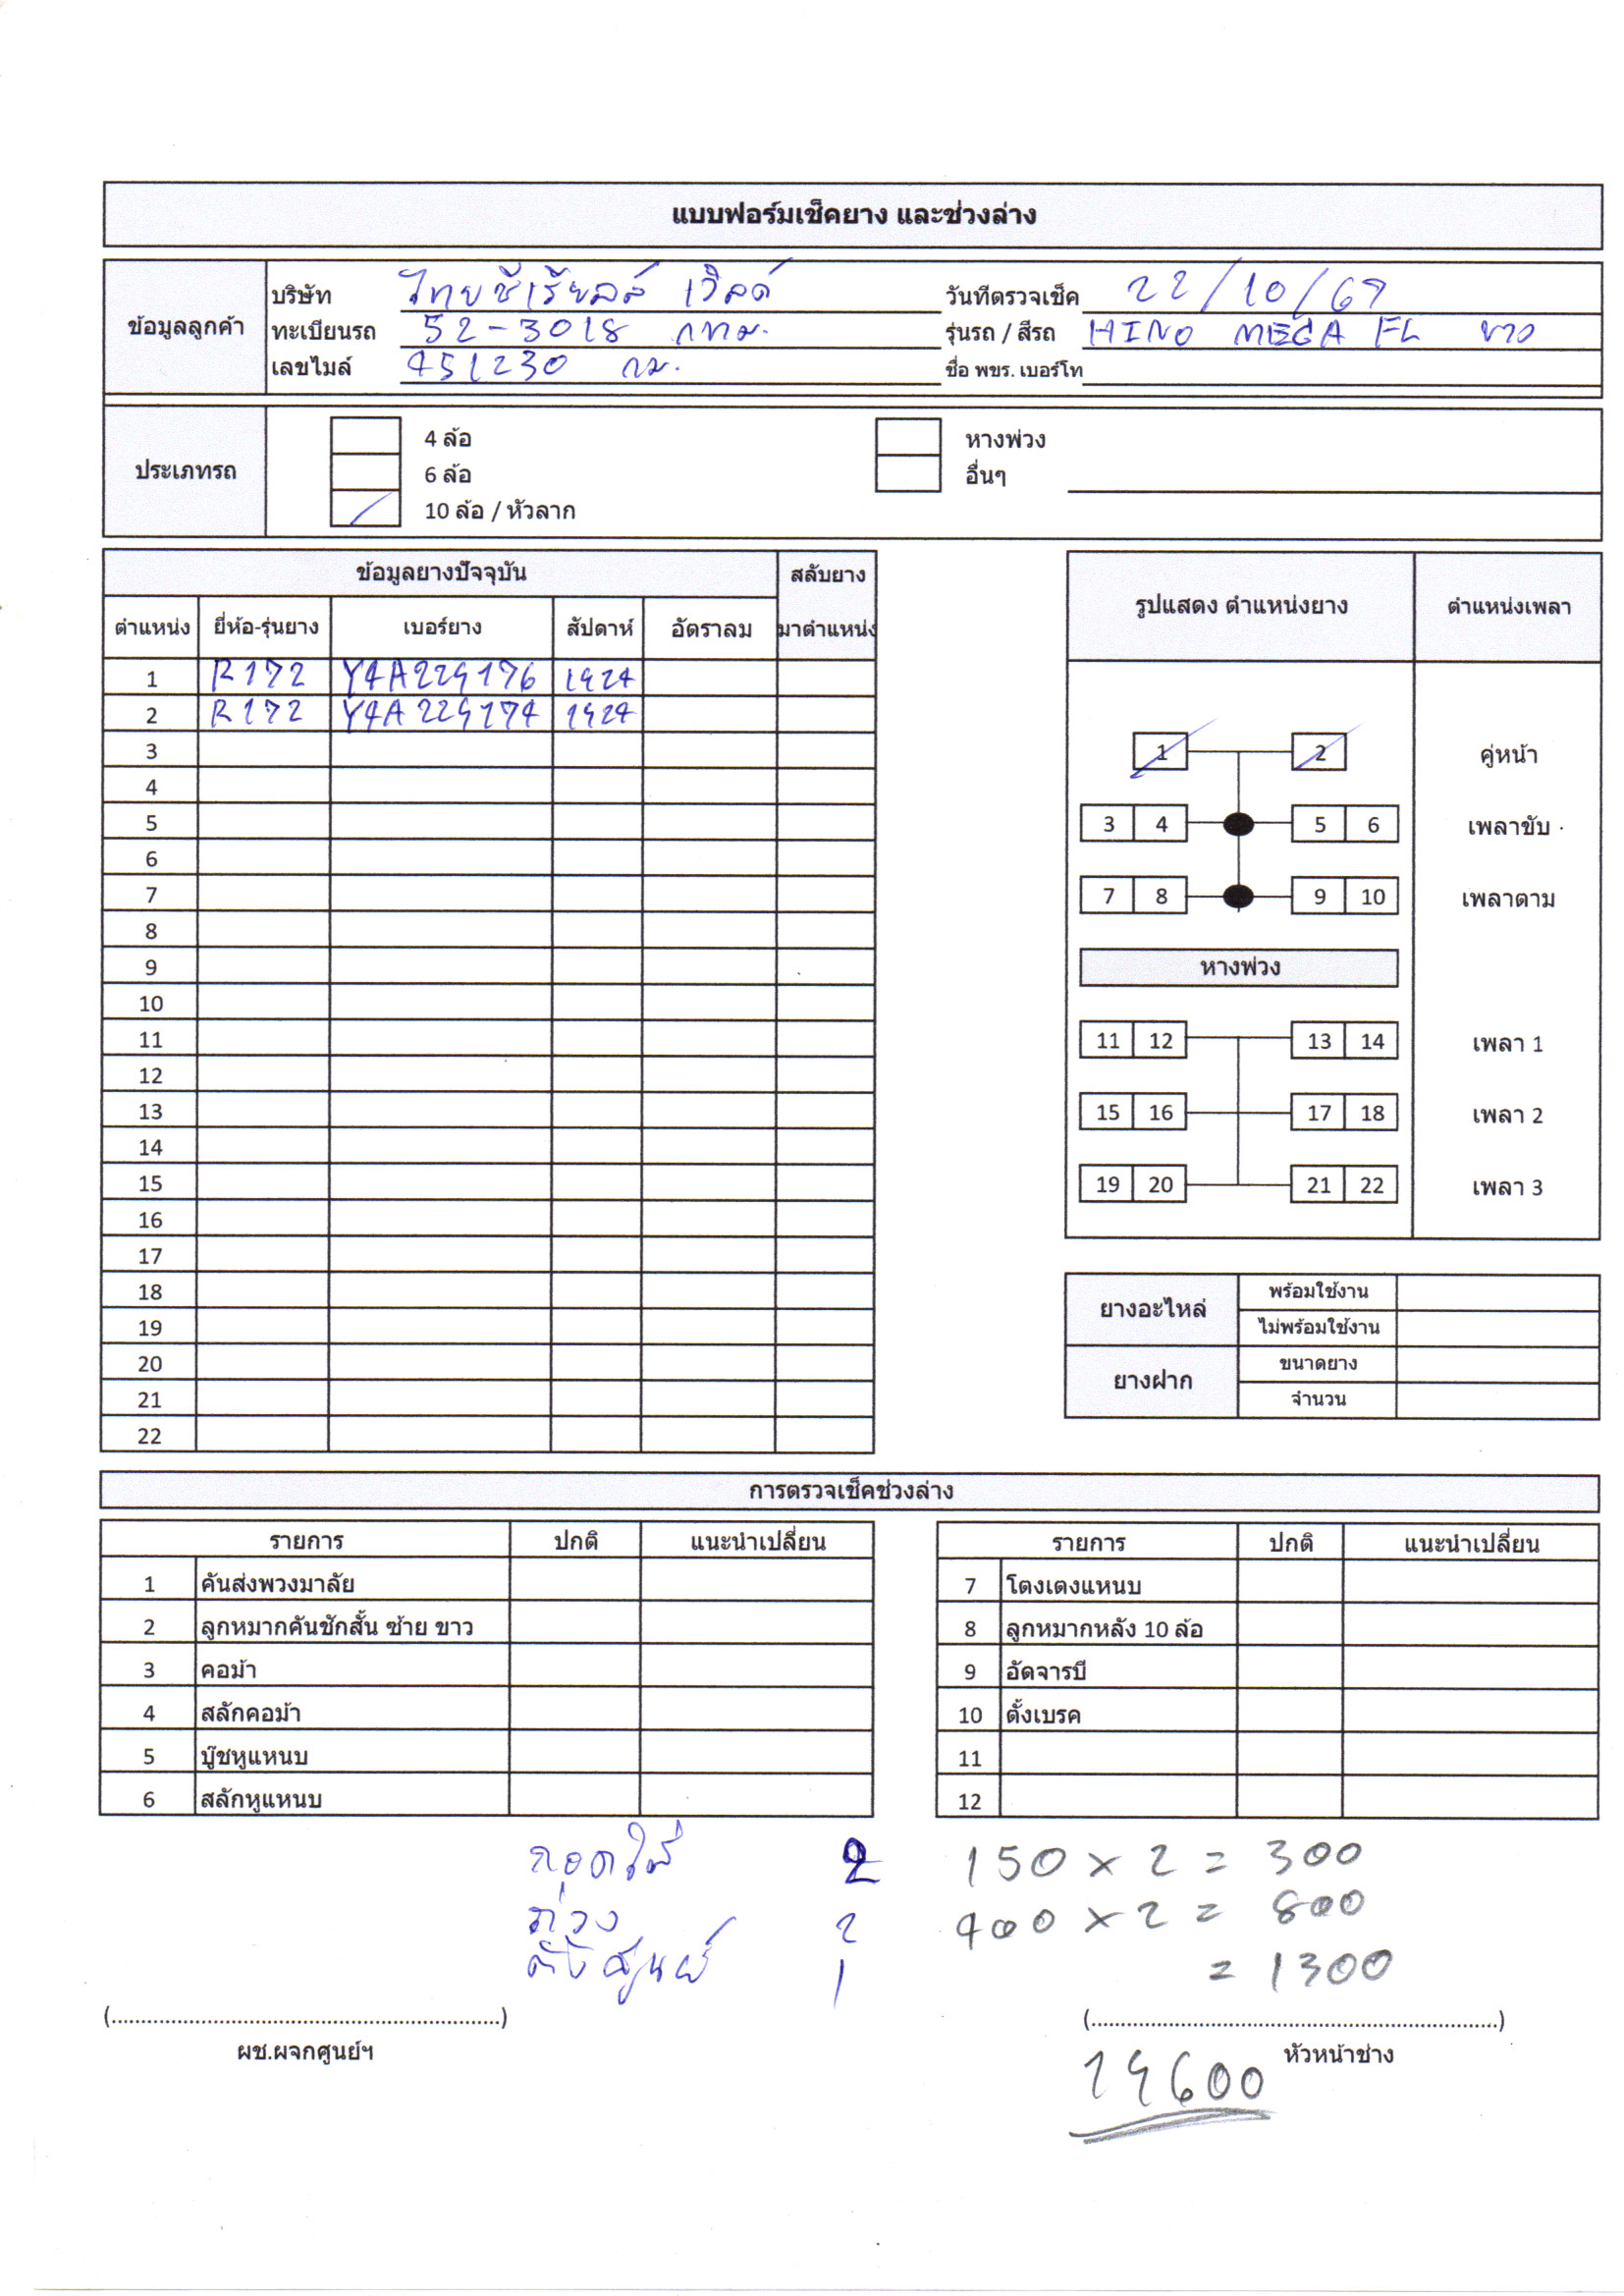 แบบฟอร์มเช็คยาง และช่วงล่าง
ข้อมูลลูกค้า
บริษัท ไทยซีเรียลส์ เวิลด์ วันที่ตรวจเช็ค 22/10/67
ทะเบียนรถ 52-3018 กทม. รุ่นรถ / สีรถ HINO MEGA FL ขาว
เลขไมล์ 451230 กม. ชื่อ พขร. เบอร์โท
ประเภทรถ
4 ล้อ หางพ่วง
6 ล้อ อื่นๆ
10 ล้อ / หัวลาก
ข้อมูลยางปัจจุบัน สลับยาง
ตำแหน่ง ยี่ห้อ-รุ่นยาง เบอร์ยาง สัปดาห์ อัตราลม มาตำแหน่ง
1 R172 Y4A229176 1924
2 R172 Y4A229174 1924
3
4
5
6
7
8
9
10
11
12
13
14
15
16
17
18
19
20
21
22
รูปแสดง ตำแหน่งยาง ตำแหน่งเพลา
1 2 คู่หน้า
3 4 5 6 เพลาขับ
7 8 9 10 เพลาตาม
หางพ่วง
11 12 13 14 เพลา 1
15 16 17 18 เพลา 2
19 20 21 22 เพลา 3
ยางอะไหล่ พร้อมใช้งาน
ไม่พร้อมใช้งาน
ยางฝาก ขนาดยาง
จำนวน
การตรวจเช็คช่วงล่าง
รายการ ปกติ แนะนำเปลี่ยน
1 คันส่งพวงมาลัย
2 ลูกหมากคันชักสั้น ซ้าย ขาว
3 คอม้า
4 สลักคอม้า
5 บู๊ชหูแหนบ
6 สลักหูแหนบ
รายการ ปกติ แนะนำเปลี่ยน
7 โตงเตงแหนบ
8 ลูกหมากหลัง 10 ล้อ
9 อัดจารบี
10 ตั้งเบรค
11
12
ถอดใส่ 2 150 x 2 = 300
ถ่วง 2 400 x 2 = 800
ตั้งศูนย์ 1 = 1300
(....................) (....................)
ผช.ผจกศูนย์ฯ หัวหน้าช่าง
19600